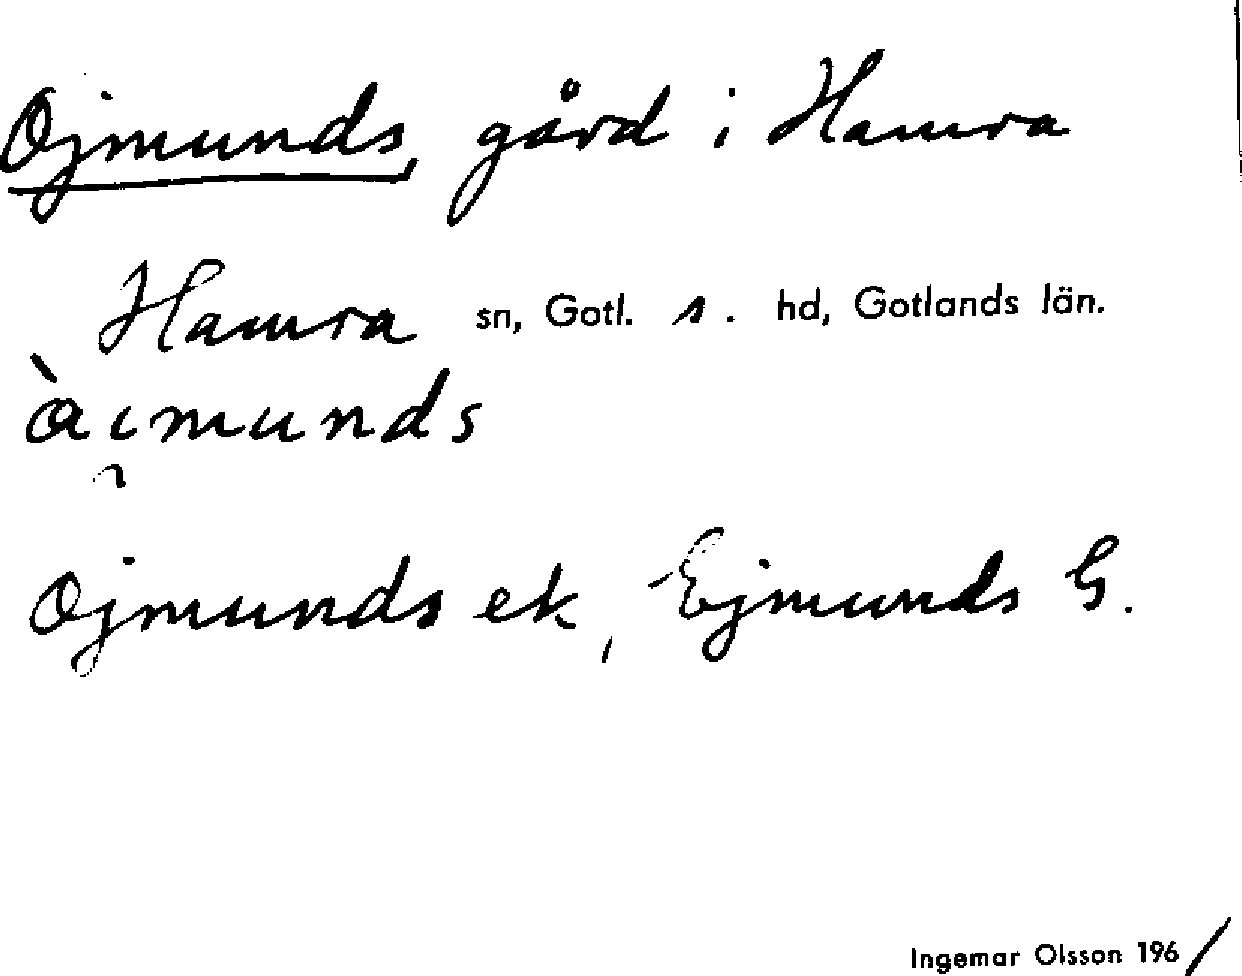 Ojmunds, gård i Hamra
Hamra sn, Gotl. s. hd, Gotlands län.
òimunds
Ojmunds ek, Ejmunds G.
Ingemar Olsson 196/